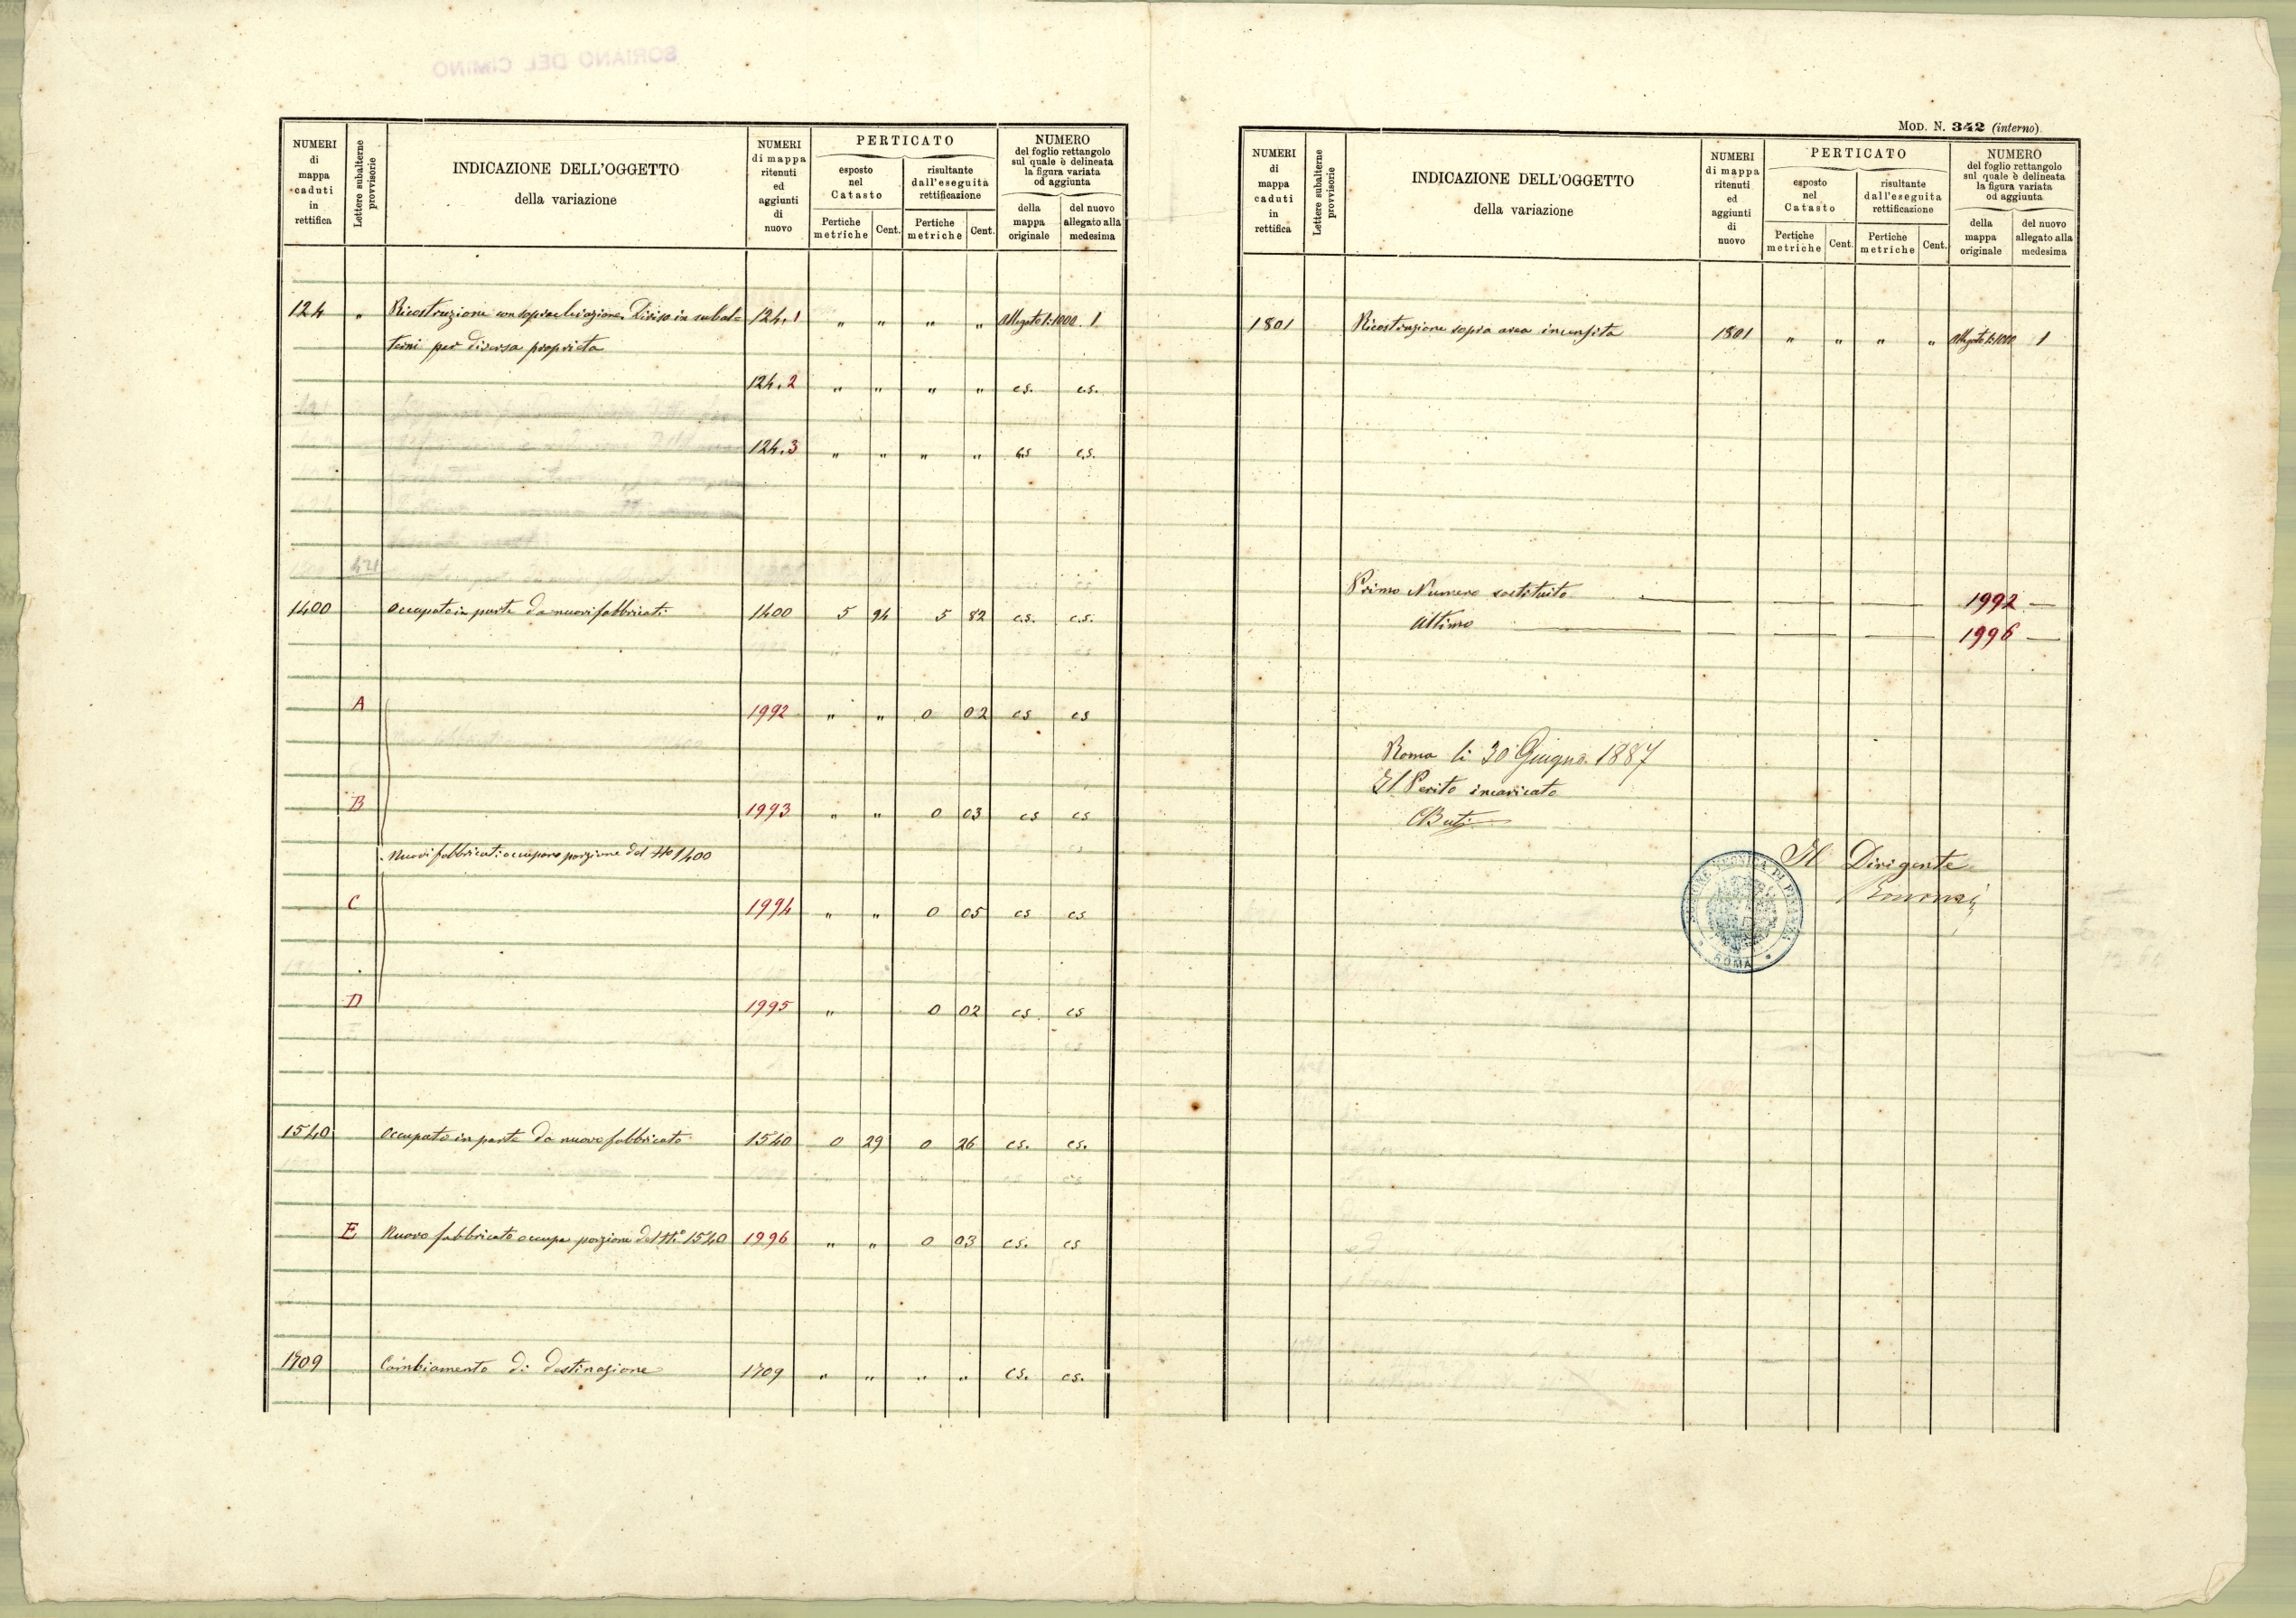 SORIANO DEL CIMINO
NUMERI di mappa caduti in rettifica
Lettere subalterne provvisorie
INDICAZIONE DELL'OGGETTO
della variazione
NUMERI di mappa ritenuti ed aggiunti di nuovo
PERTICATO
esposto nel Catasto
risultante dall'eseguita rettificazione
Pertiche metriche Cent. Pertiche metriche Cent.
NUMERO
del foglio rettangolo sul quale è delineata la figura variata od aggiunta
della mappa originale
del nuovo allegato alla medesima
124 " Ricostruzione con sopraelevazione. Diviso in subal= 124.1 " " " " Allegato 1:1000. 1
terni per diversa proprietà
124.2 " " " " c.s. c.s.
124.3 " " " " c.s c.s.
421
1400 Occupato in parte da nuovi fabbricati 1400 5 94 5 82 c.s. c.s.
A 1992 " " 0 02 cs cs
B 1993 " " 0 03 cs cs
Nuovi fabbricati occupano porzione del No 1400
C 1994 " " 0 05 cs cs
D 1995 " 0 02 cs cs
1540 Occupato in parte da nuovo fabbricato 1540 0 29 0 26 cs. cs.
E Nuovo fabbricato occupa porzione del No 1540 1996 " " 0 03 cs. cs
1709 Cambiamento di destinazione 1709 " " " " cs. cs.
MOD. N. 342 (interno).
NUMERI di mappa caduti in rettifica
Lettere subalterne provvisorie
INDICAZIONE DELL'OGGETTO
della variazione
NUMERI di mappa ritenuti ed aggiunti di nuovo
PERTICATO
esposto nel Catasto
risultante dall'eseguita rettificazione
Pertiche metriche Cent. Pertiche metriche Cent.
NUMERO
del foglio rettangolo sul quale è delineata la figura variata od aggiunta
della mappa originale
del nuovo allegato alla medesima
1801 Ricostruzione sopra area incensita 1801 " " " " Allegato 1:1000 1
Primo Numero sostituito 1992
Ultimo 1996
Roma li 30 Giugno 1887
Il Perito incaricato
Il Dirigente
ROMA